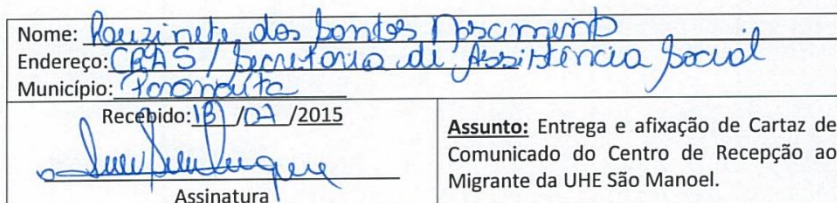 Nome: Rauzinete dos Santos Nascimento
Endereço: CRAS / Secretaria de Assistência Social
Município: Paranaíta
Recebido: /07 /2015
Assinatura
Assunto: Entrega e afixação de Cartaz de
Comunicado do Centro de Recepção ao
Migrante da UHE São Manoel.